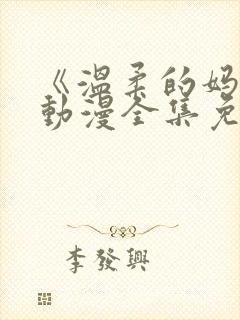 《温柔的妈
动漫全集免
李發興